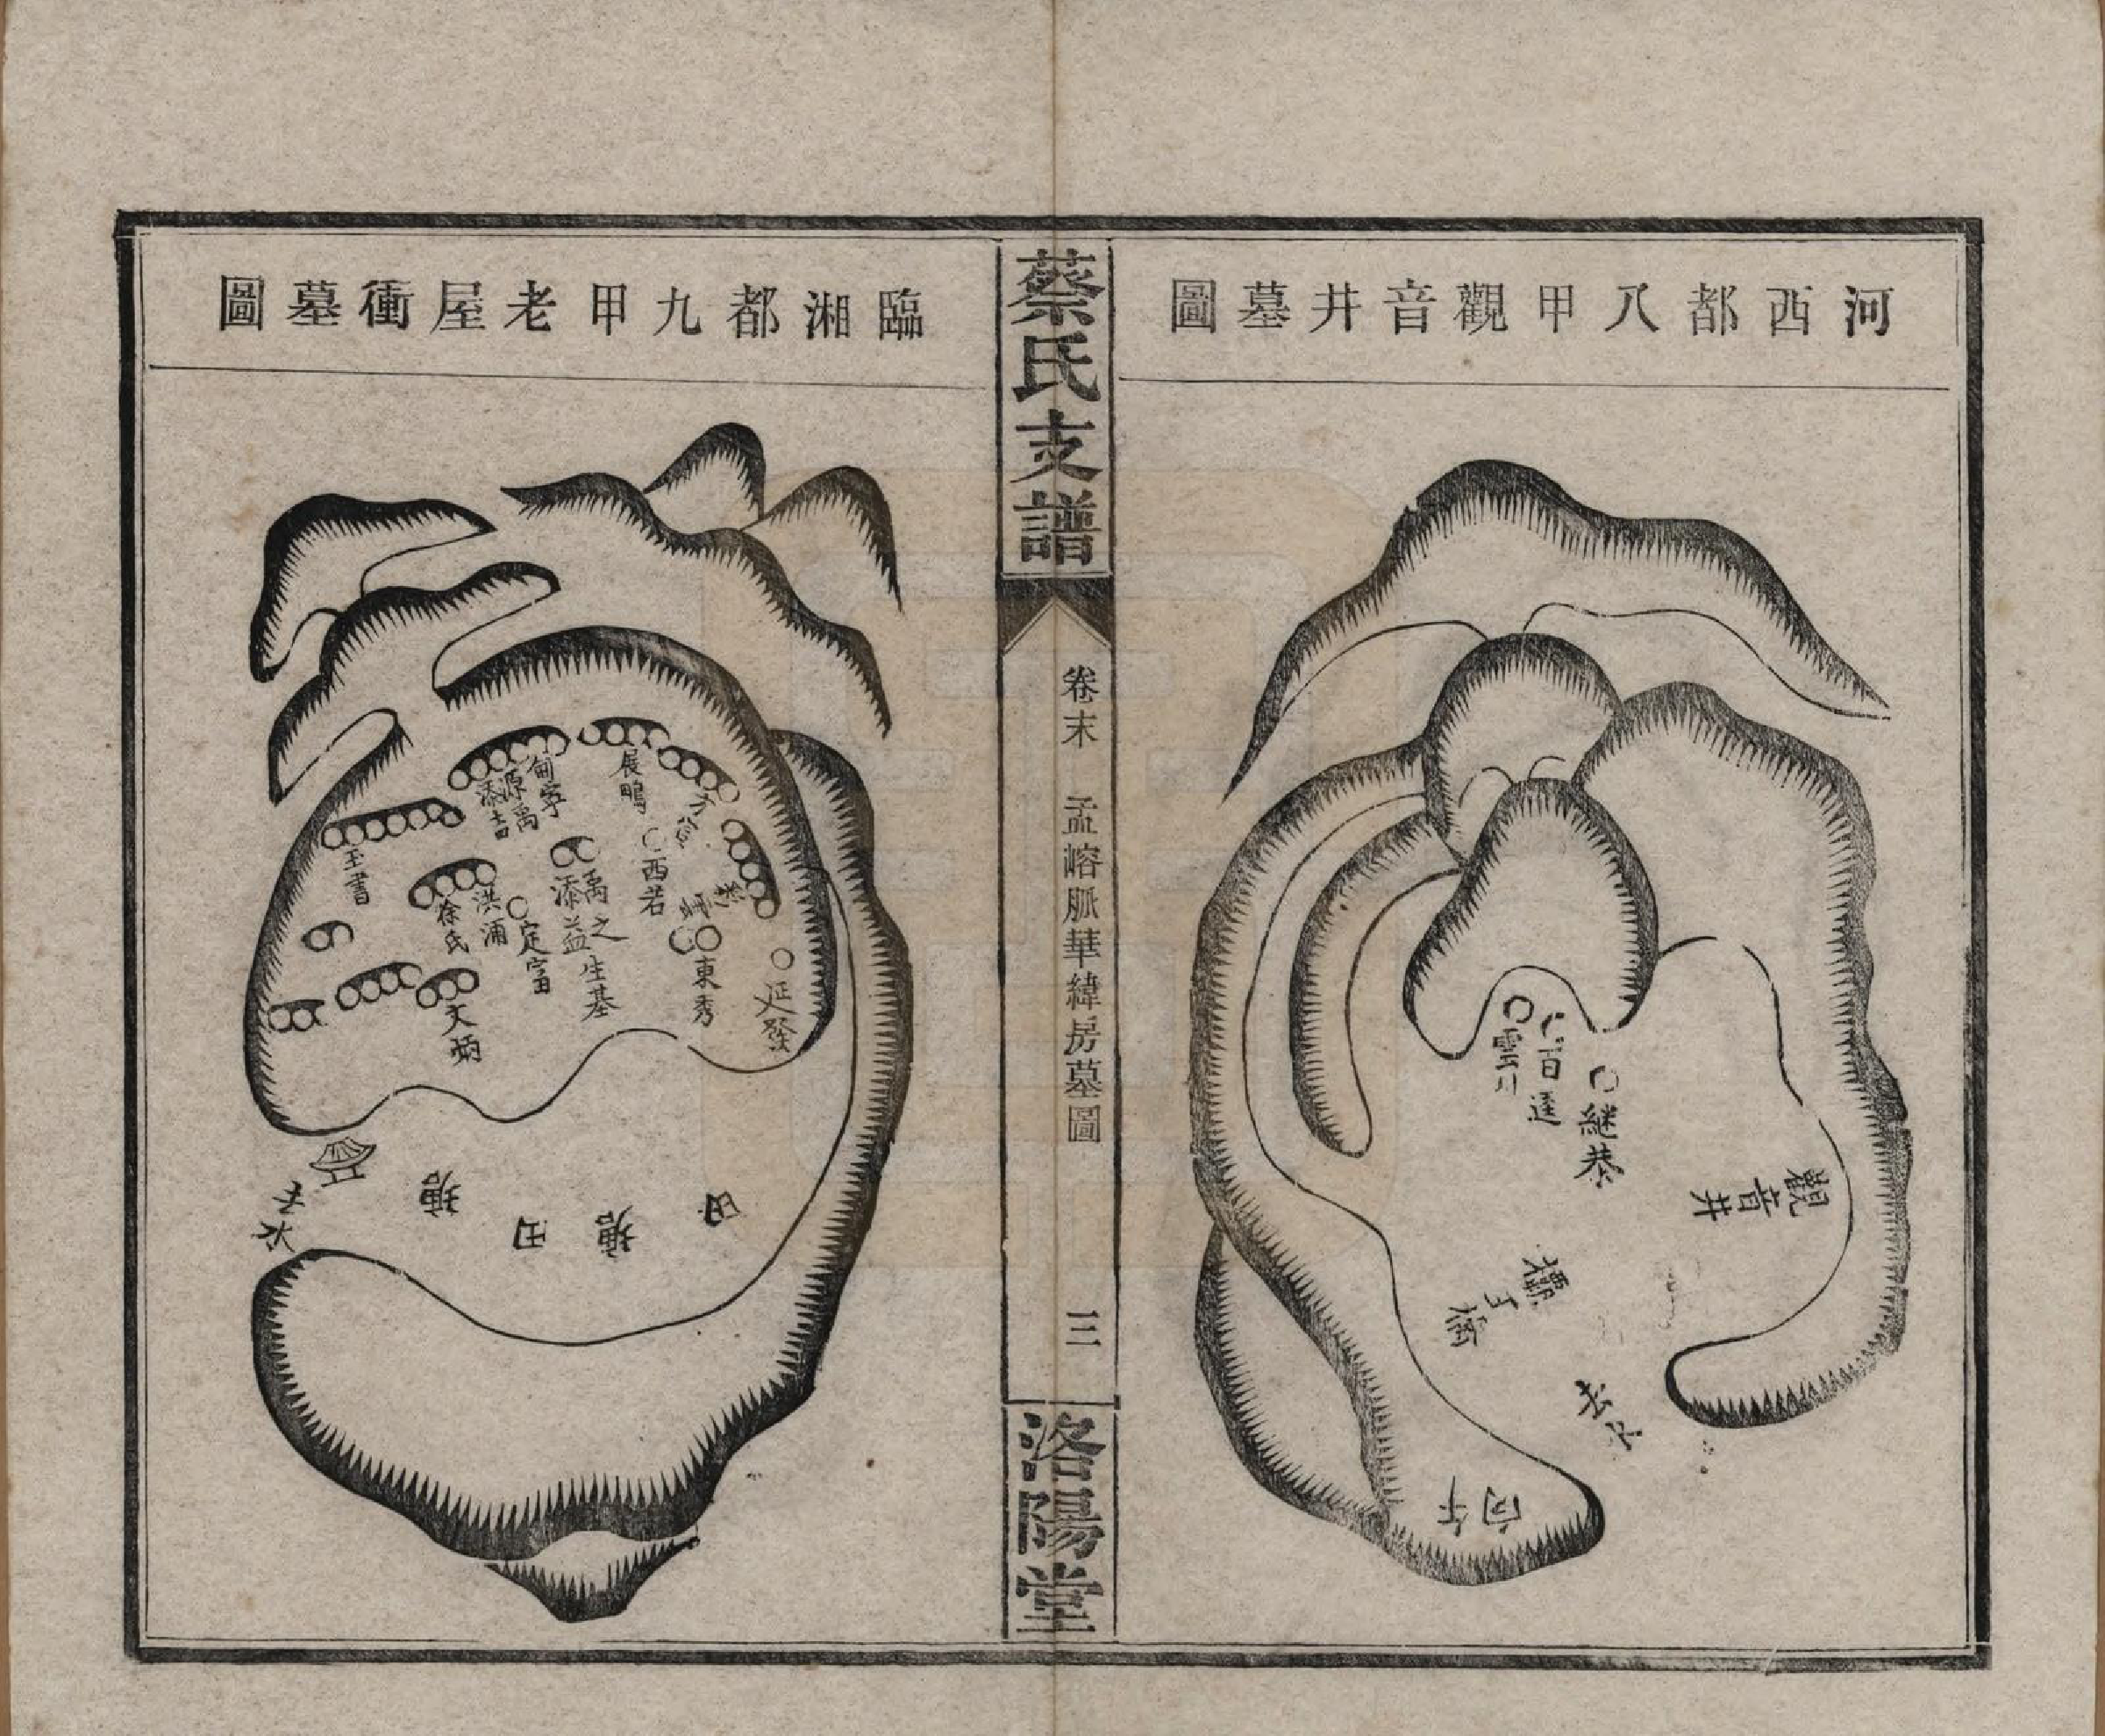 河西都八甲觀音井墓圖
雲二
百逵
繼恭
觀音井
去水
向午
蔡氏支譜
卷末 孟嵱脈華緯房墓圖
三
洛陽堂
臨湘都九甲老屋衝墓圖
展鳴
源禹
添吉
玉書
西若
禹之生基
添益
定富
洪浦
徐氏
東秀
延發
文炳
去水
塘
田
塘
田